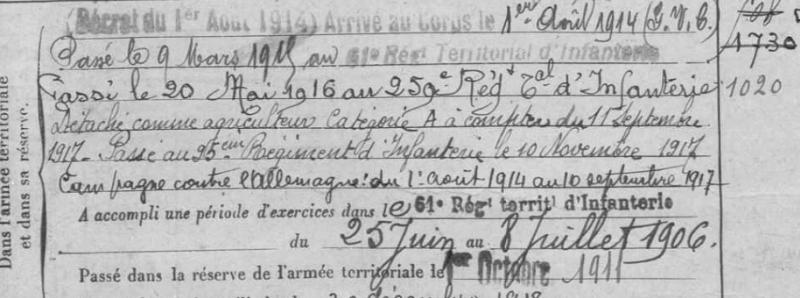 (Décret du 1er Août 1914) Arrivé au Corps le 1er Août 1914 (S.V.C.)
Passé le 9 Mars 1915 au 61e Rég Territorial d'Infanterie 1730
Passé le 20 Mai 1916 au 259e Régt Tal d'Infanterie 1020
Détaché comme agriculteur Catégorie A à compter du 11 septembre
1917 - Passé au 95eme Régiment d'Infanterie le 10 Novembre 1917
Campagne contre l'allemagne: du 1er août 1914 au 10 septembre 1917
A accompli une période d'exercices dans le 61e Régt territl d'Infanterie
du 25 Juin au 8 Juillet 1906.
Passé dans la réserve de l'armée territoriale le 1er Octobre 1911
Dans l'armée territoriale
et dans sa réserve.